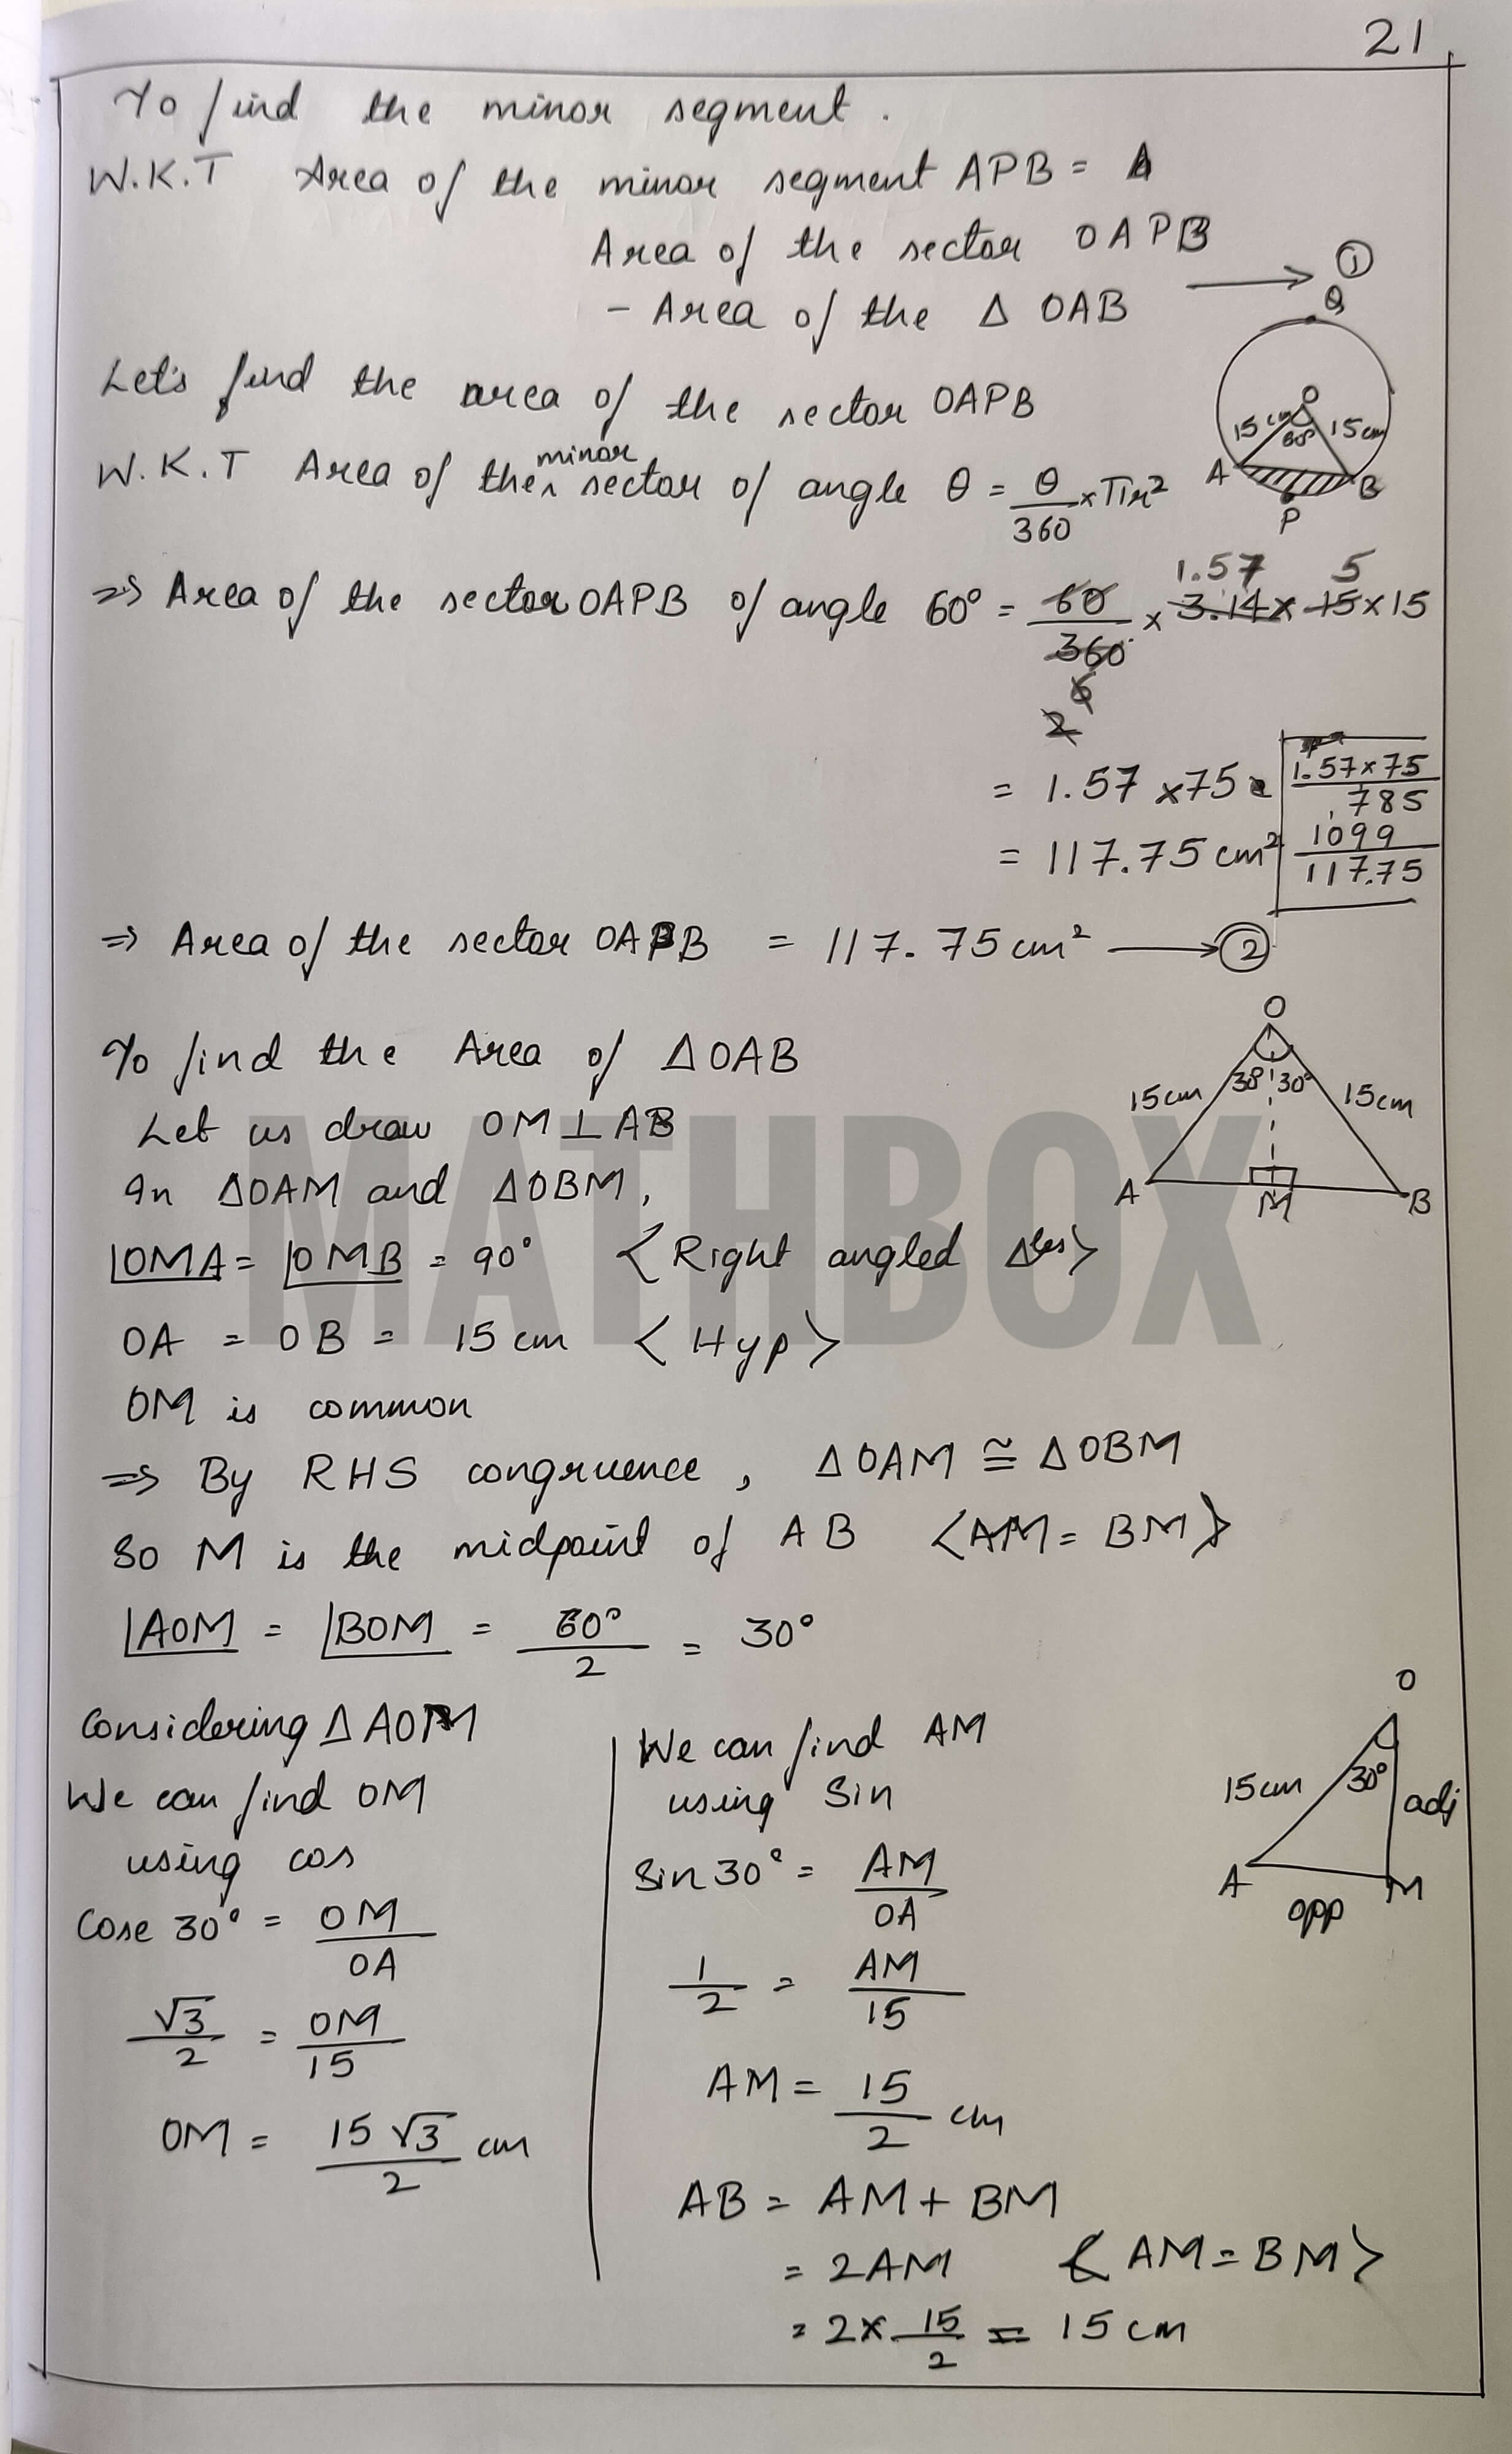 21
To find the minor segment.
W.K.T Area of the minor segment APB =
Area of the sector OAPB
- Area of the Δ OAB ⟶ ①
Let's find the area of the sector OAPB
W.K.T Area of the minor sector of angle θ = θ/360 × πr²
Q
O
15 cm 60° 15 cm
A B
P
⇒ Area of the sector OAPB of angle 60° = 60/360 × 3.14 × 15 × 15
1.57 5
6
2
= 1.57 × 75
= 117.75 cm²
1.57 × 75
785
1099
117.75
⇒ Area of the sector OAPB = 117.75 cm² ⟶ ②
To find the Area of ΔOAB
Let us draw OM ⊥ AB
In ΔOAM and ΔOBM,
∠OMA = ∠OMB = 90° <Right angled Δles>
OA = OB = 15 cm <Hyp>
OM is common
O
30° 30°
15cm 15cm
A M B
⇒ By RHS congruence, ΔOAM ≅ ΔOBM
So M is the midpoint of AB <AM = BM>
∠AOM = ∠BOM = 60°/2 = 30°
Considering ΔAOM
We can find OM
using cos
Cose 30° = OM/OA
√3/2 = OM/15
OM = 15√3/2 cm
We can find AM
using Sin
Sin 30° = AM/OA
1/2 = AM/15
AM = 15/2 cm
AB = AM + BM
= 2AM <AM = BM>
= 2 × 15/2 = 15 cm
O
15cm 30° adj
A M
opp
MATHBOX